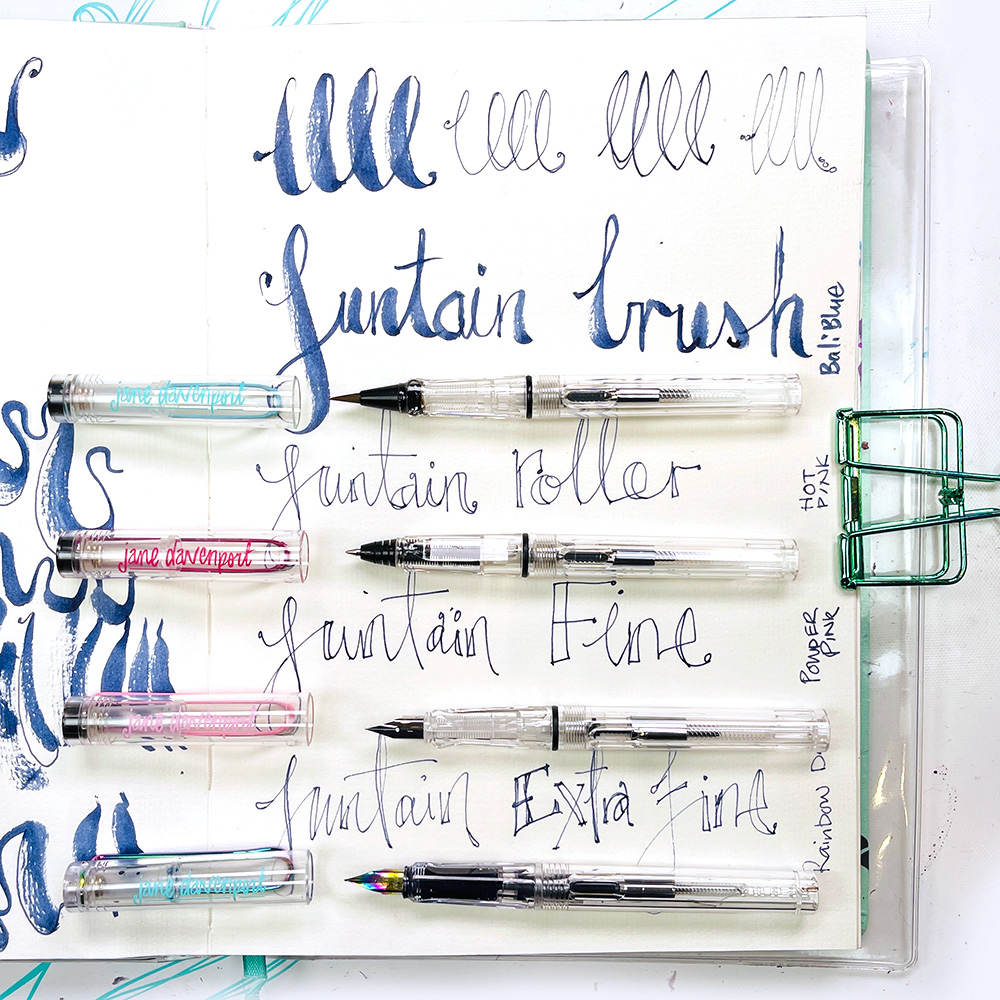 funtain brush
Bali Blue
jane davenport
funtain roller
HOT
PINK
jane davenport
funtain Fine
POWDER
PINK
jane davenport
funtain Extra Fine
Rainbow
jane davenport